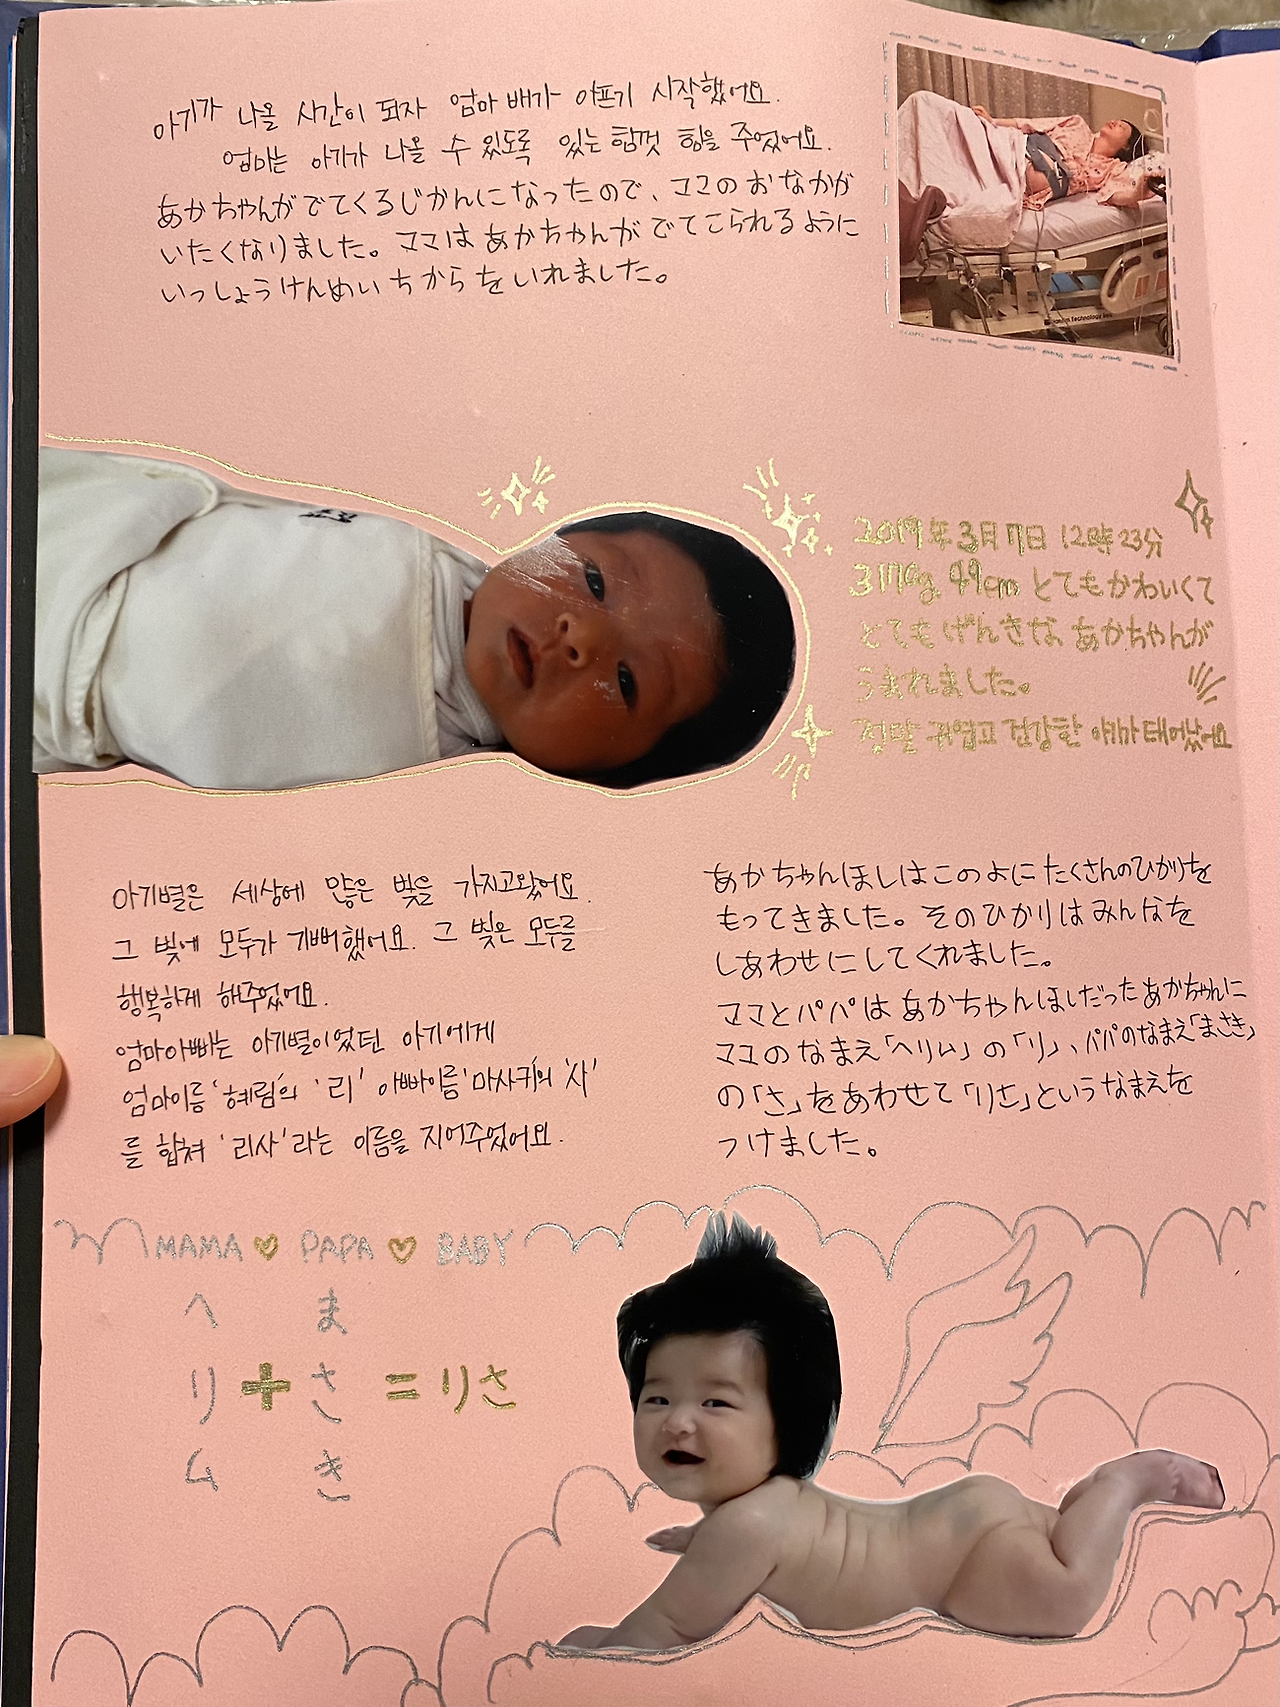 아기가 나올 시간이 되자 엄마 배가 아프기 시작했어요.
엄마는 아기가 나올 수 있도록 있는 힘껏 힘을 주었어요.
あかちゃんがでてくるじかんになったので、ママのおなかが
いたくなりました。ママはあかちゃんがでてこられるように
いっしょうけんめいちからをいれました。
Technology
2019年3月7日 12時23分
3170g, 49cm とてもかわいくて
とてもげんきな あかちゃんが
うまれました。
정말 귀엽고 건강한 아기가 태어났어요
아기별은 세상에 많은 빛을 가지고왔어요.
그 빛에 모두가 기뻐했어요. 그 빛은 모두를
행복하게 해주었어요.
엄마아빠는 아기별이었던 아기에게
엄마이름 '혜림'의 '리' 아빠이름 '마사키'의 '사'
를 합쳐 '리사'라는 이름을 지어주었어요.
あかちゃんほしはこのよにたくさんのひかりを
もってきました。そのひかりはみんなを
しあわせにしてくれました。
ママとパパはあかちゃんほしだったあかちゃんに
ママのなまえ「ヘリム」の「リ」、パパのなまえ「まさき」
の「さ」をあわせて「りさ」というなまえを
つけました。
MAMA ♡ PAPA ♡ BABY
ヘ ま
リ + さ = りさ
ム き